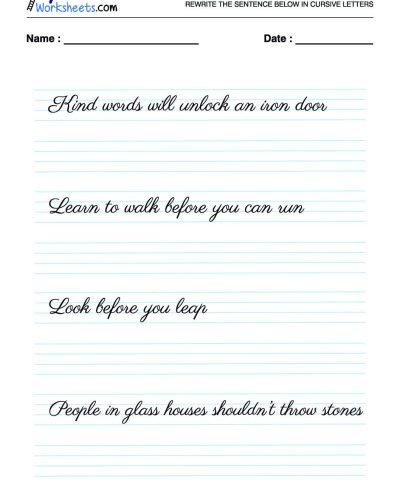 Worksheets.com
REWRITE THE SENTENCE BELOW IN CURSIVE LETTERS
Name : Date :
Kind words will unlock an iron door
Learn to walk before you can run
Look before you leap
People in glass houses shouldn't throw stones